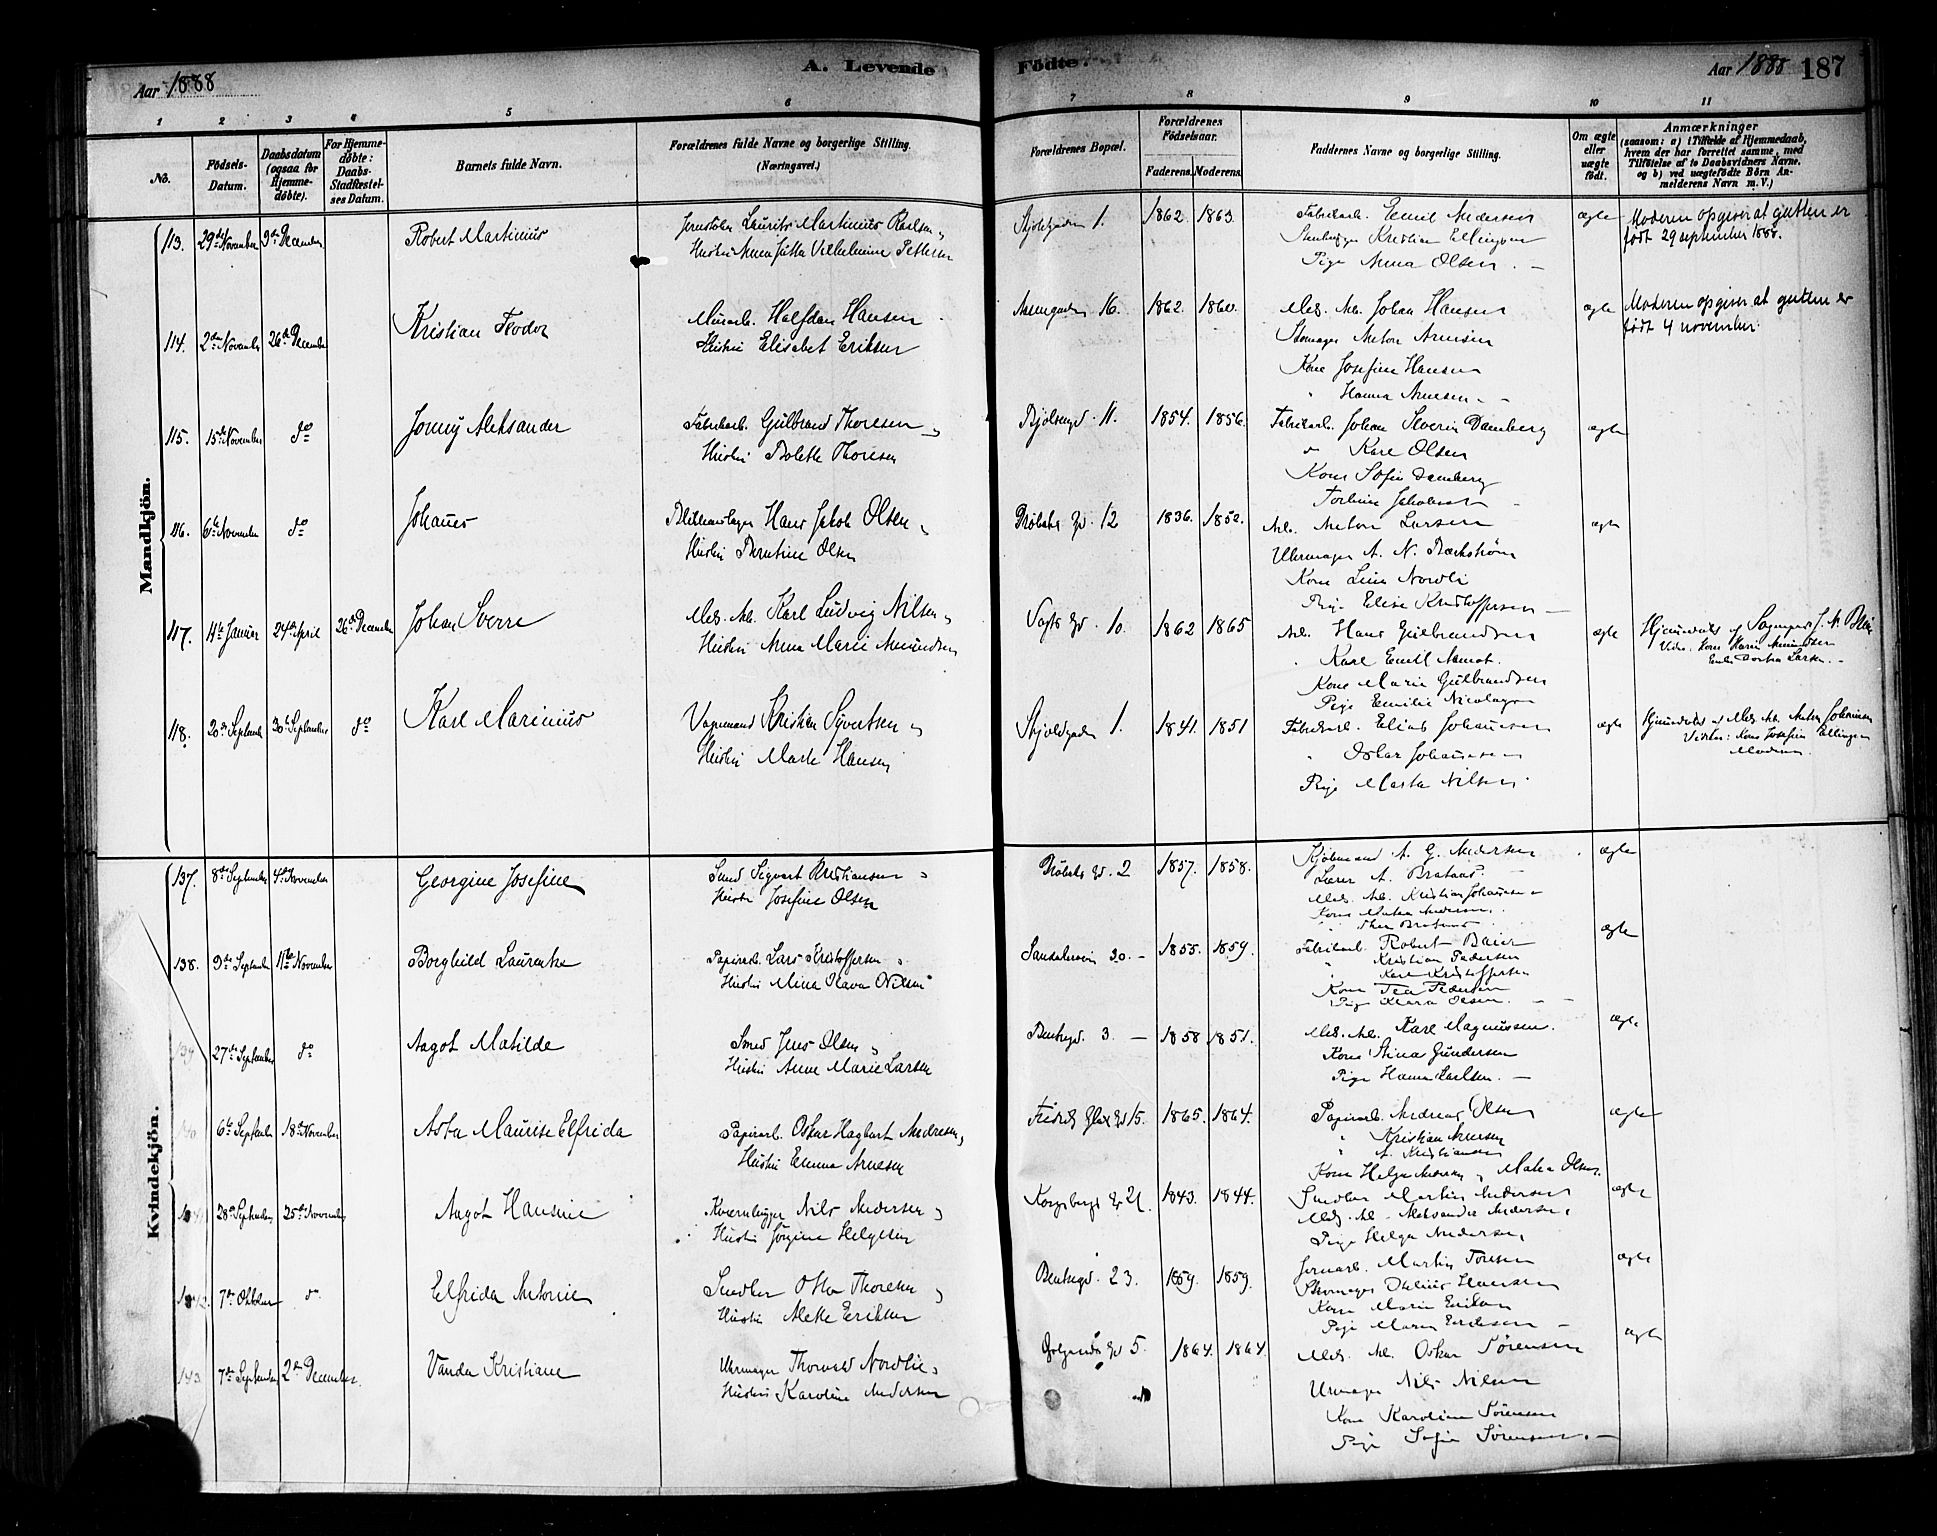 Aar 1888
A. Levende
Födte.
Aar 1888
187
1 2 3 4 5 6 7 8 9 10 11
No.
Födsels-Datum.
Daabsdatum (ogsaa for Hjemmedöbte).
For Hjemmedöbte: Daabs-Stadfæstelses Datum.
Barnets fulde Navn.
Forældrenes fulde Navne og borgerlige Stilling. (Næringsvei.)
Forældrenes Bopæl.
Forældrenes Födselsaar.
Faderens. Moderens.
Faddernes Navne og borgerlige Stilling.
Om ægte eller uægte födt.
Anmærkninger
(saasom: a) i Tilfælde af Hjemmedaab, hvem der har forrettet samme, med Tilföielse af to Daabsvidners Navne, og b) ved uægtefödte Börn Anmelderens Navn m. V.)
Mandkjön.
113. 29de November 9de December Robert Martinius
Laurits Martinius Karlsen
Hustru Anna Jutta Vilhelmine Pettersen
1. 1862. 1863.
Fabrikarb. Emil Andersen
Kristian Ellingsen
Pige Anna Olsen
ægte
Moderen opgiver at gutten er
født 29 september 1888.
114. 2den November 26de December Kristian Teodor
Murarb. Halfdan Hansen
Hustru Elisabet Eriksen
16. 1862. 1860.
Mek. Arb. Johan Hansen
Skomager Anton Arnesen
Kone Josefine Hansen
Hanna Arnesen
ægte
Moderen opgiver at gutten er
født 4 november.
115. 15de November do Jonny Aleksander
Fabrikarb. Gulbrand Thoresen
Hustru Bolette Thoresen
Bjølsengd. 11. 1854. 1856.
Fabrikarb. Johan Severin Damberg
Karl Olsen
Kone Sofie Damberg
ægte
116. 6te November do Johannes
Blikkenslager Hans Jakob Olsen
Hustru Berntine Olsen
Drøbaks Gd. 12 1836. 1852.
Arb. Anton Larsen
Uhrmager A. N. Bækstrøm
Kone Lina Nordli
Pige Elise Kristoffersen
ægte
117. 11te Januar 24de April 26de December Johan Sverre
Mek. Arb. Karl Ludvig Nilsen
Hustru Anna Marie Amundsen
Vogts Gd. 10. 1862 1865
Arb. Hans Gulbrandsen
Karl Emil
Kone Marie Gulbrandsen
Pige Emilie Nicolaysen
ægte
118. 20de Septemb 30te September do Karl Marinius
Vognmand Kristian Syvertsen
Hustru Marte Hansen
Skjoldgaden 1. 1841. 1851
Fabrikarb. Elias Johannesen
Oskar Johannesen
Pige Marta Nilsen
ægte
Kvindekjön.
137. 8de September 4de November Georgine Josefine
Smed Sigvart Kristiansen
Hustru Josefine Olsen
Drøbaks Gd. 2 1857. 1858.
Kjøbmand A. G. Andersen
Mek. Arb. Kristian Johansen
ægte
138. 9de Septemb 11te November Borghild Laurentze
Papirarb. Lars Kristoffersen
Hustru Mina Klara Nilsen
Sandakerveien 30. 1855. 1859.
Fabrikarb. Robert Baier
Kristian Pedersen
Karl Kristoffersen
Kone Tea Pedersen
Pige Klara Olsen
ægte
139 27de September do Aagot Matilde
Smed Jens Olsen
Hustru Anne Marie Larsen
Bentsegd. 3. 1858 1851.
Mek. Arb. Karl Magnussen
Kone Stina Gundersen
Pige Hanna Karlsen
ægte
140 6te Septemb 18de November Asta Maurise Elfrida
Papirarb. Oskar Hagbart Andresen
Hustru Emma Arnesen
15. 1865. 1864.
Papirarb. Andreas Olsen
Kristian Arnesen
A. Kristiansen
ægte
141 28de September 25de November Aagot Hansine
Nils Andersen
Hustru Jørgine Helgesen
Kongsbergs Gd 21. 1843. 1844.
Snedker Martin Andersen
Mek. Arb. Aleksander Andersen
Pige Helga Andersen
ægte
142. 7de Oktober do Elfrida Antonie
Snedker Otto Thoresen
Hustru Alette Eriksen
Bentsegd. 23. 1859. 1859.
Jernarb. Martin Toresen
Skomager Hansen
Kone Marie Eriksen
ægte
143 7de September 2den December Vanda Kristiane
Uhrmager Thorvald Nordlie
Hustru Karoline Andersen
5. 1864. 1864.
Mek. Arb. Oskar Sørensen
Urmager Nils Nilsen
Kone Karoline Sørensen
Pige Sofie Sørensen
ægte